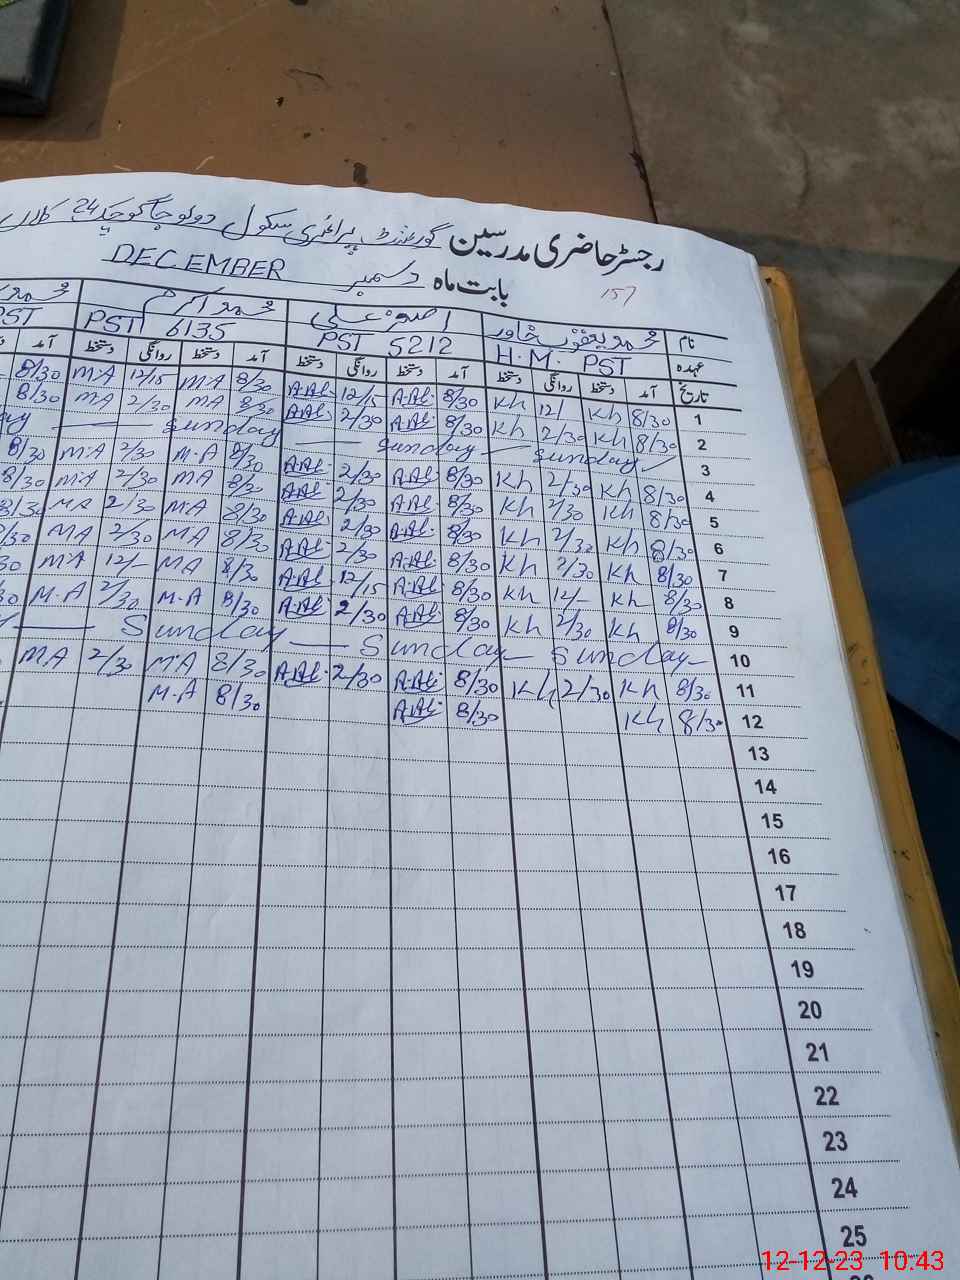 رجسٹر حاضری مدرسین گورنمنٹ پرائمری سکول دولو جاگو چک 24 کلاں
بابت ماہ دسمبر DECEMBER 157
نام محمد یعقوب خاور اصغر علی محمد اکرم محمد
عہدہ H.M. PST PST 5212 PST 6135 PST
تاریخ آمد دستخط روانگی دستخط آمد دستخط روانگی دستخط آمد دستخط روانگی دستخط آمد
1 8/30 Kh 12/- Kh 8/30 A.Ali 12/15 A.Ali 8/30 M.A 12/15 M.A 8/30
2 8/30 Kh 2/30 Kh 8/30 A.Ali 2/30 A.Ali 8/30 MA 2/30 MA 8/30
3 Sunday Sunday Sunday
4 8/30 Kh 2/30 Kh 8/30 A.Ali 2/30 A.Ali 8/30 M.A 2/30 M.A 8/30
5 8/30 Kh 2/30 Kh 8/30 A.Ali 2/30 A.Ali 8/30 MA 2/30 M.A 8/30
6 8/30 Kh 2/30 Kh 8/30 A.Ali 2/30 A.Ali 8/30 MA 2/30 MA 8/30
7 8/30 Kh 2/30 Kh 8/30 A.Ali 2/30 A.Ali 8/30 MA 2/30 MA
8 8/30 Kh 12/- Kh 8/30 A.Ali 12/15 A.Ali 8/30 MA 12/- M.A
9 8/30 Kh 2/30 Kh 8/30 A.Ali 2/30 A.Ali 8/30 M.A 2/30 M.A
10 Sunday Sunday Sunday
11 8/30 Kh 2/30 Kh 8/30 A.Ali 2/30 A.Ali 8/30 M.A 2/30 MA
12 8/30 Kh 8/30 A.Ali 8/30 M.A
13
14
15
16
17
18
19
20
21
22
23
24
25
12-12-23 10.43